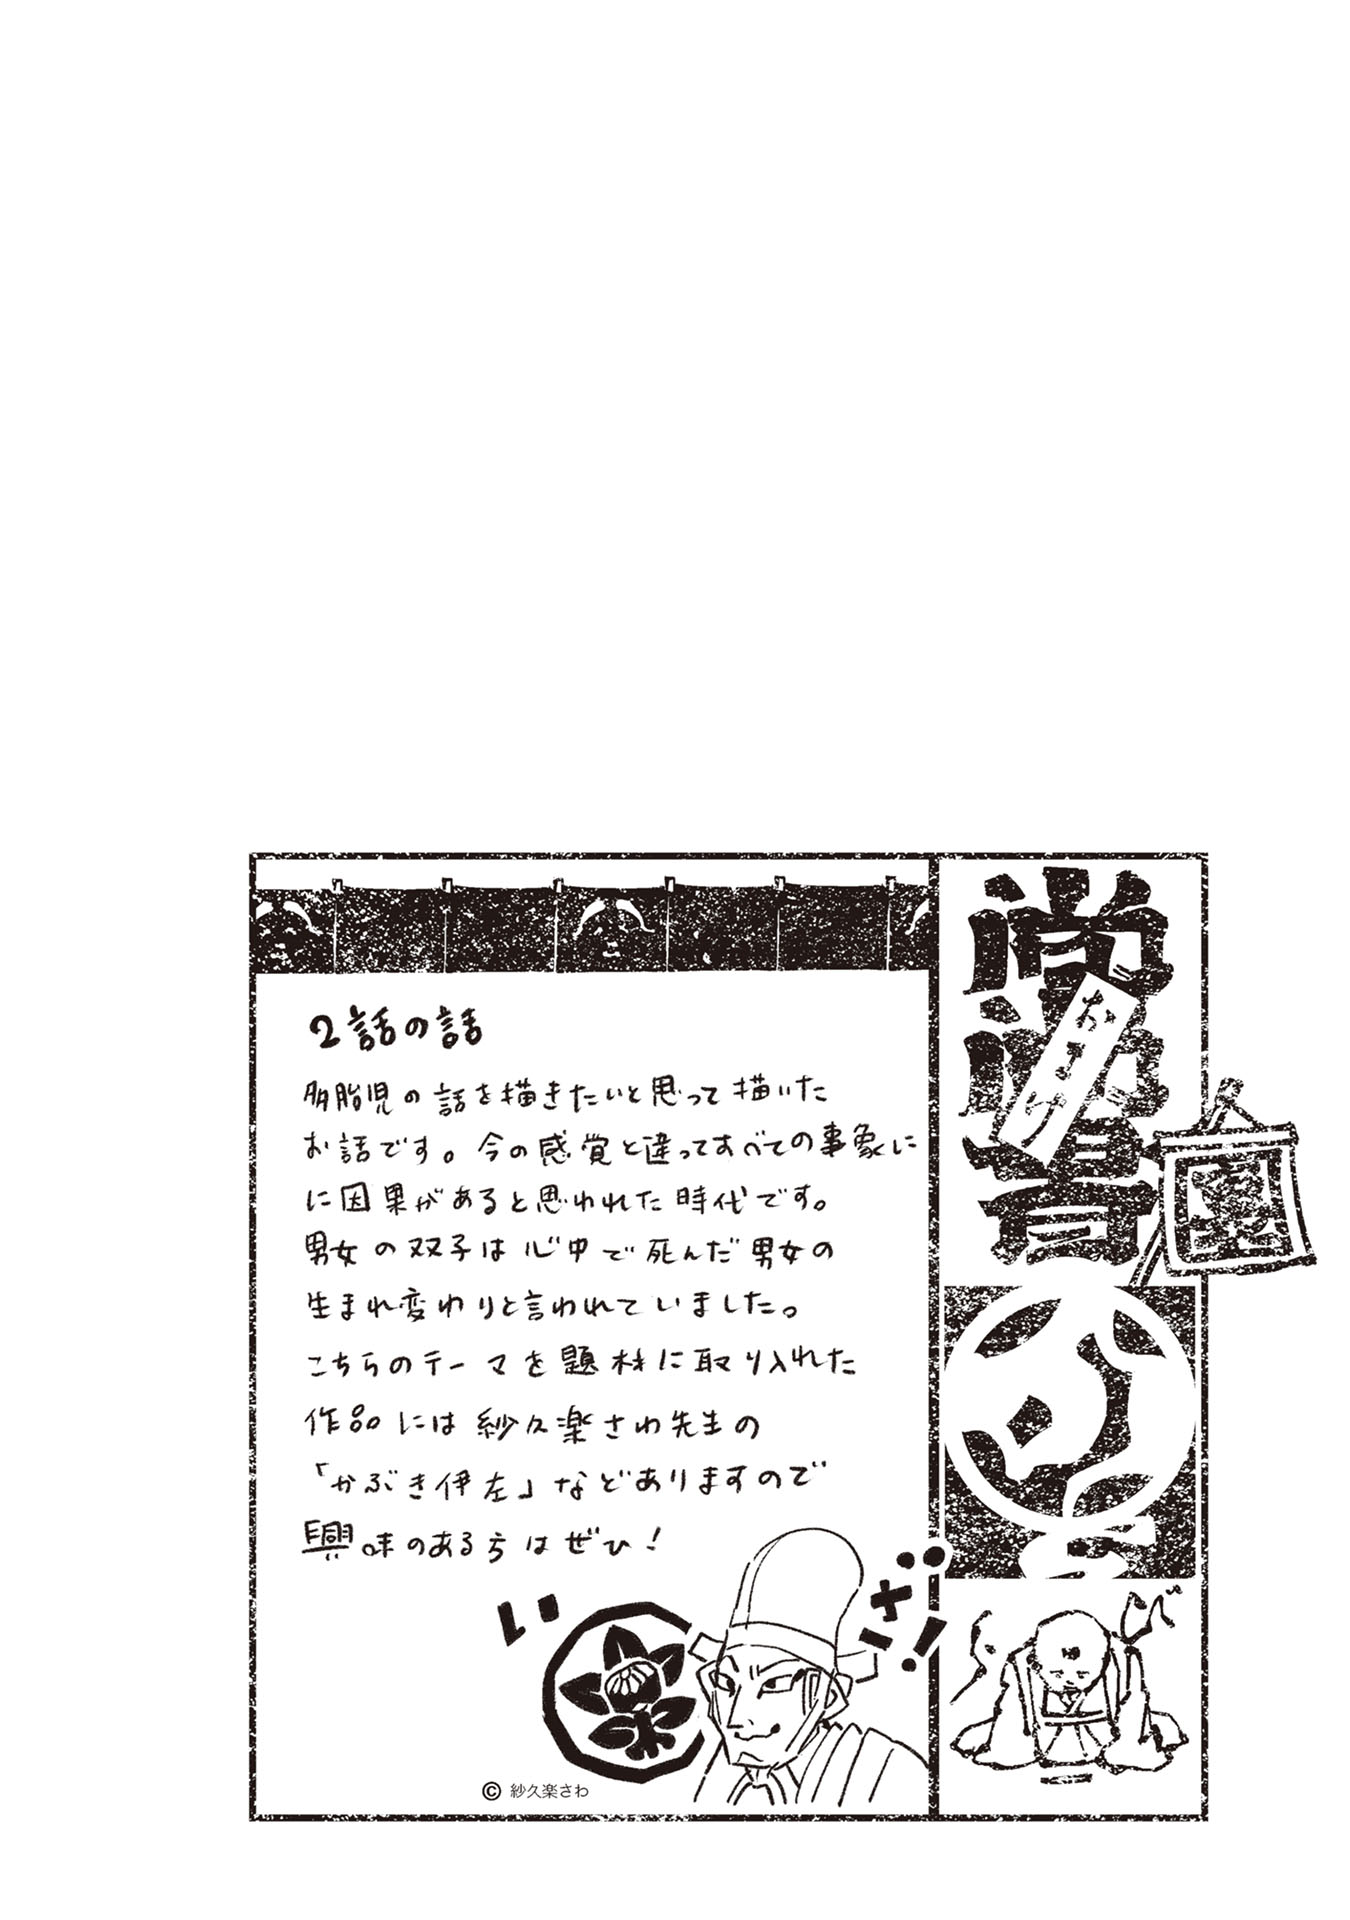 2話の話
多胎児の話を描きたいと思って描いた
お話です。今の感覚と違ってすべての事象に
に因果があると思われた時代です。
男女の双子は心中で死んだ男女の
生まれ変わりと言われていました。
こちらのテーマを題材に取り入れた
作品には紗久楽さわ先生の
「かぶき伊左」などありますので
興味のある方はぜひ!
いざ!
© 紗久楽さわ
おまけ